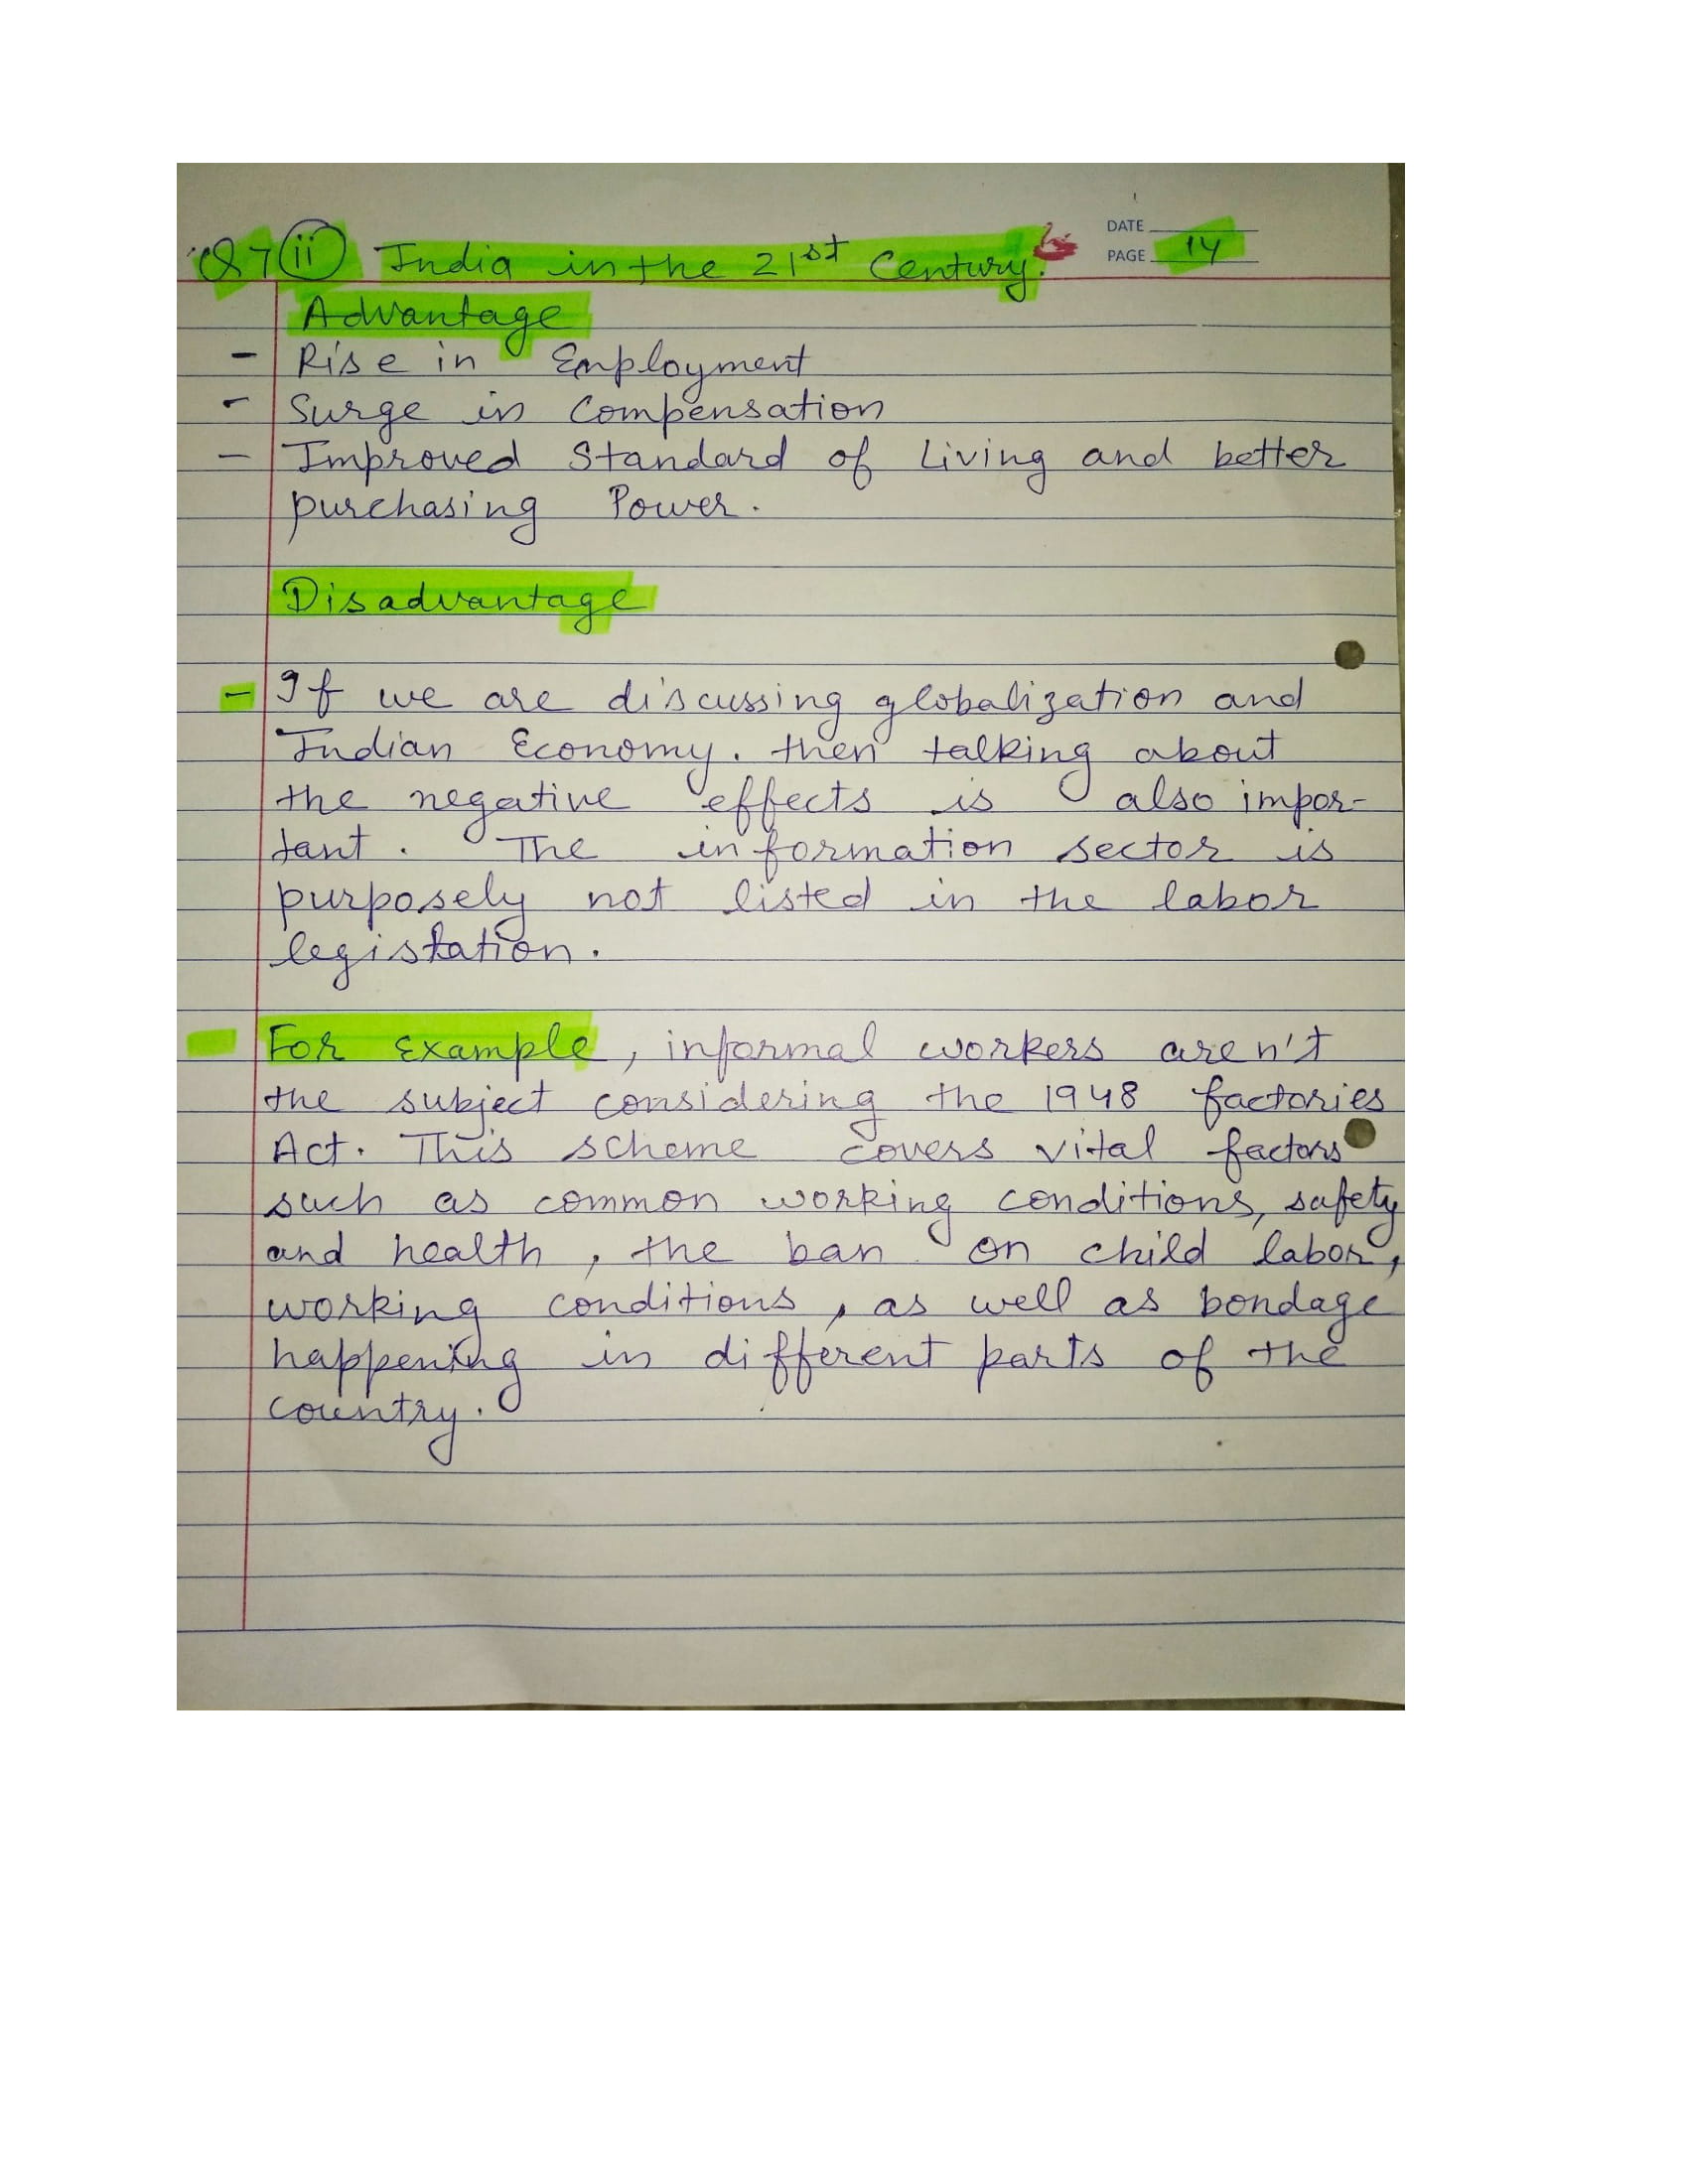 DATE
Q7 (ii) India in the 21st Century.
PAGE 14
Advantage
- Rise in Employment
- Surge in Compensation
- Improved Standard of Living and better
purchasing Power.
Disadvantage
- If we are discussing globalization and
Indian Economy. then talking about
the negative effects is also impor-
tant. The information sector is
purposely not listed in the labor
legistation.
For Example, informal workers aren't
the subject considering the 1948 factories
Act. This scheme covers vital factors
such as common working conditions, safety
and health, the ban on child labor,
working conditions, as well as bondage
happening in different parts of the
country.